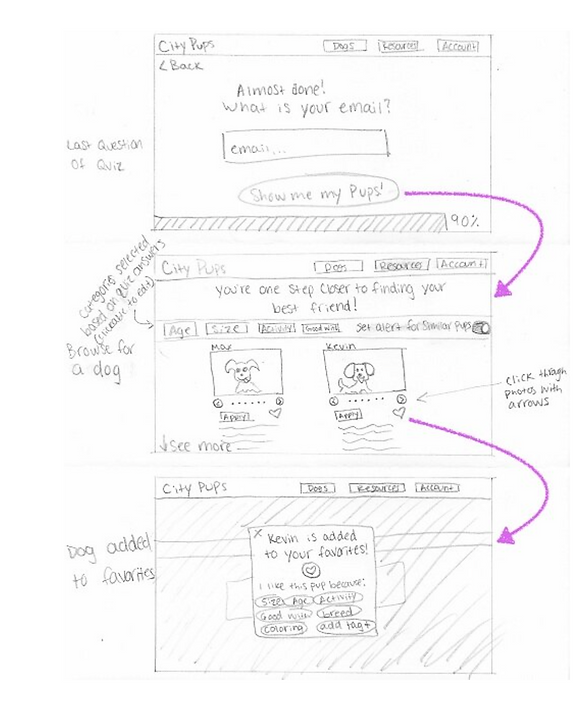 City Pups
Dogs
Resources
Account
< Back
Almost done!
What is your email?
Last Question
Of Quiz
email...
Show me my Pups!
90%
categories selected
based on quiz answers
(clickable to edit)
City Pups
Dogs
Resources
Account
you're one step closer to finding your
best friend!
Age
Size
Activity
Good with
Set alert for similar Pups
Browse for
a dog
Max
Kevin
< >
< >
Apply
Apply
click through
photos with
arrows
↓See more
City Pups
Dogs
Resources
Account
Dog added
to favorites
X Kevin is added
to your favorites!
I like this pup because:
Size Age Activity
Good with breed
coloring add tag+